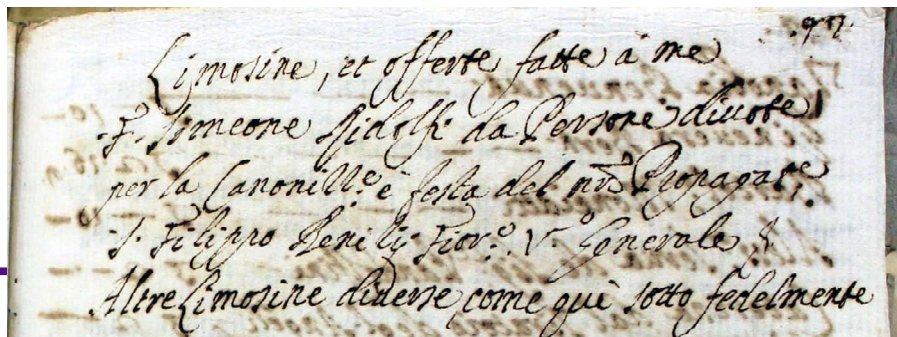 Limosine, et offerte fatte a me
F. Simeone Ridolfi da Persone divote
per la Canoniz.e e festa del nro Propagat.e
S. Filippo Benizij Fior.o V.o Generale
Altre Limosine diverse, come qui sotto fedelmente